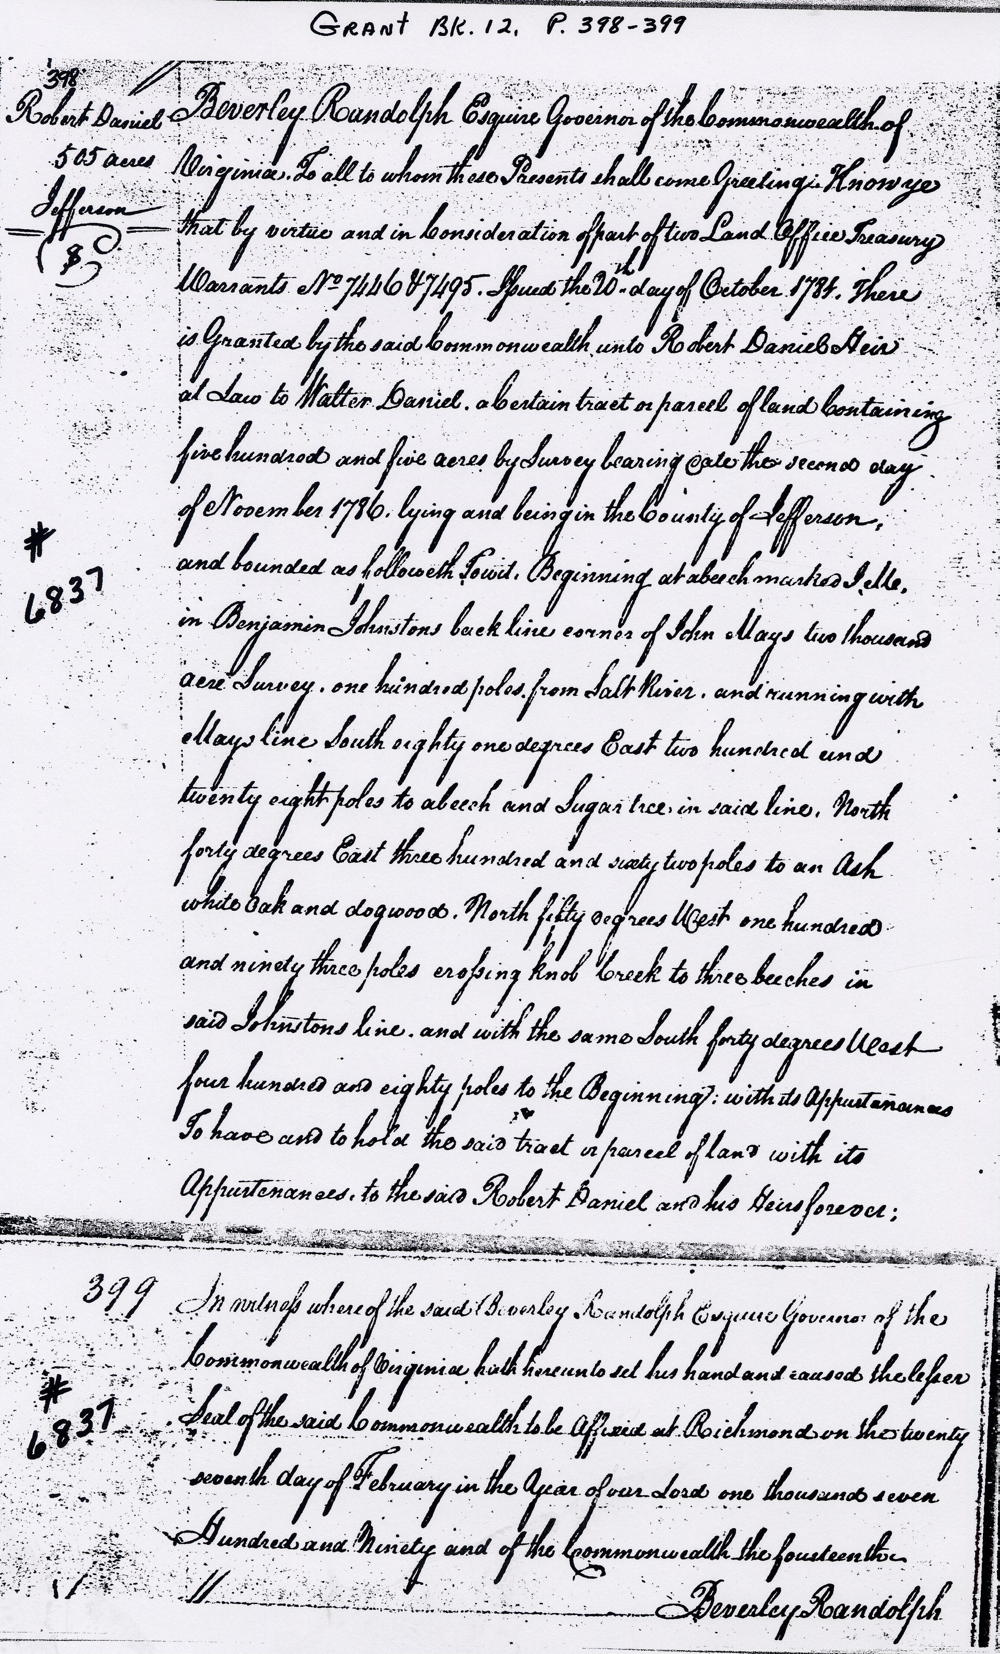 GRANT BK. 12, P. 398-399
398
Robert Daniel
505 acres
Jefferson
Beverley Randolph Esquire Governor of the Commonwealth of
Virginia. To all to whom these Presents shall come Greeting: Know ye
that by virtue and in Consideration of part of two Land Office Treasury
Warrants No 7446 & 7495. Issued the 20th day of October 1784. There
is Granted by the said Commonwealth unto Robert Daniel Heir
at Law to Walter Daniel. a Certain tract or parcel of land Containing
five hundred and five acres by Survey bearing date the second day
of November 1786. lying and being in the County of Jefferson,
# 6837
and bounded as followeth Towit. Beginning at a beech marked I. M.
in Benjamin Johnstons back line corner of John Mays two thousand
acre Survey. one hundred poles from Salt River. and running with
Mays line South eighty one degrees East two hundred and
twenty eight poles to a beech and Sugar tree in said line. North
forty degrees East three hundred and sixty two poles to an Ash
white Oak and dogwood. North fifty degrees West one hundred
and ninety three poles crossing knob Creek to three beeches in
said Johnstons line. and with the same South forty degrees West
four hundred and eighty poles to the Beginning: with its Appurtenances
To have and to hold the said tract or parcel of land with its
Appurtenances. to the said Robert Daniel and his Heirs forever;
399
In witness whereof the said Beverley Randolph Esquire Governor of the
Commonwealth of Virginia hath hereunto set his hand and caused the lesser
# 6837
Seal of the said Commonwealth to be Affixed at Richmond on the twenty
seventh day of February in the Year of our Lord one thousand seven
Hundred and Ninety and of the Commonwealth the fourteenth
Beverley Randolph